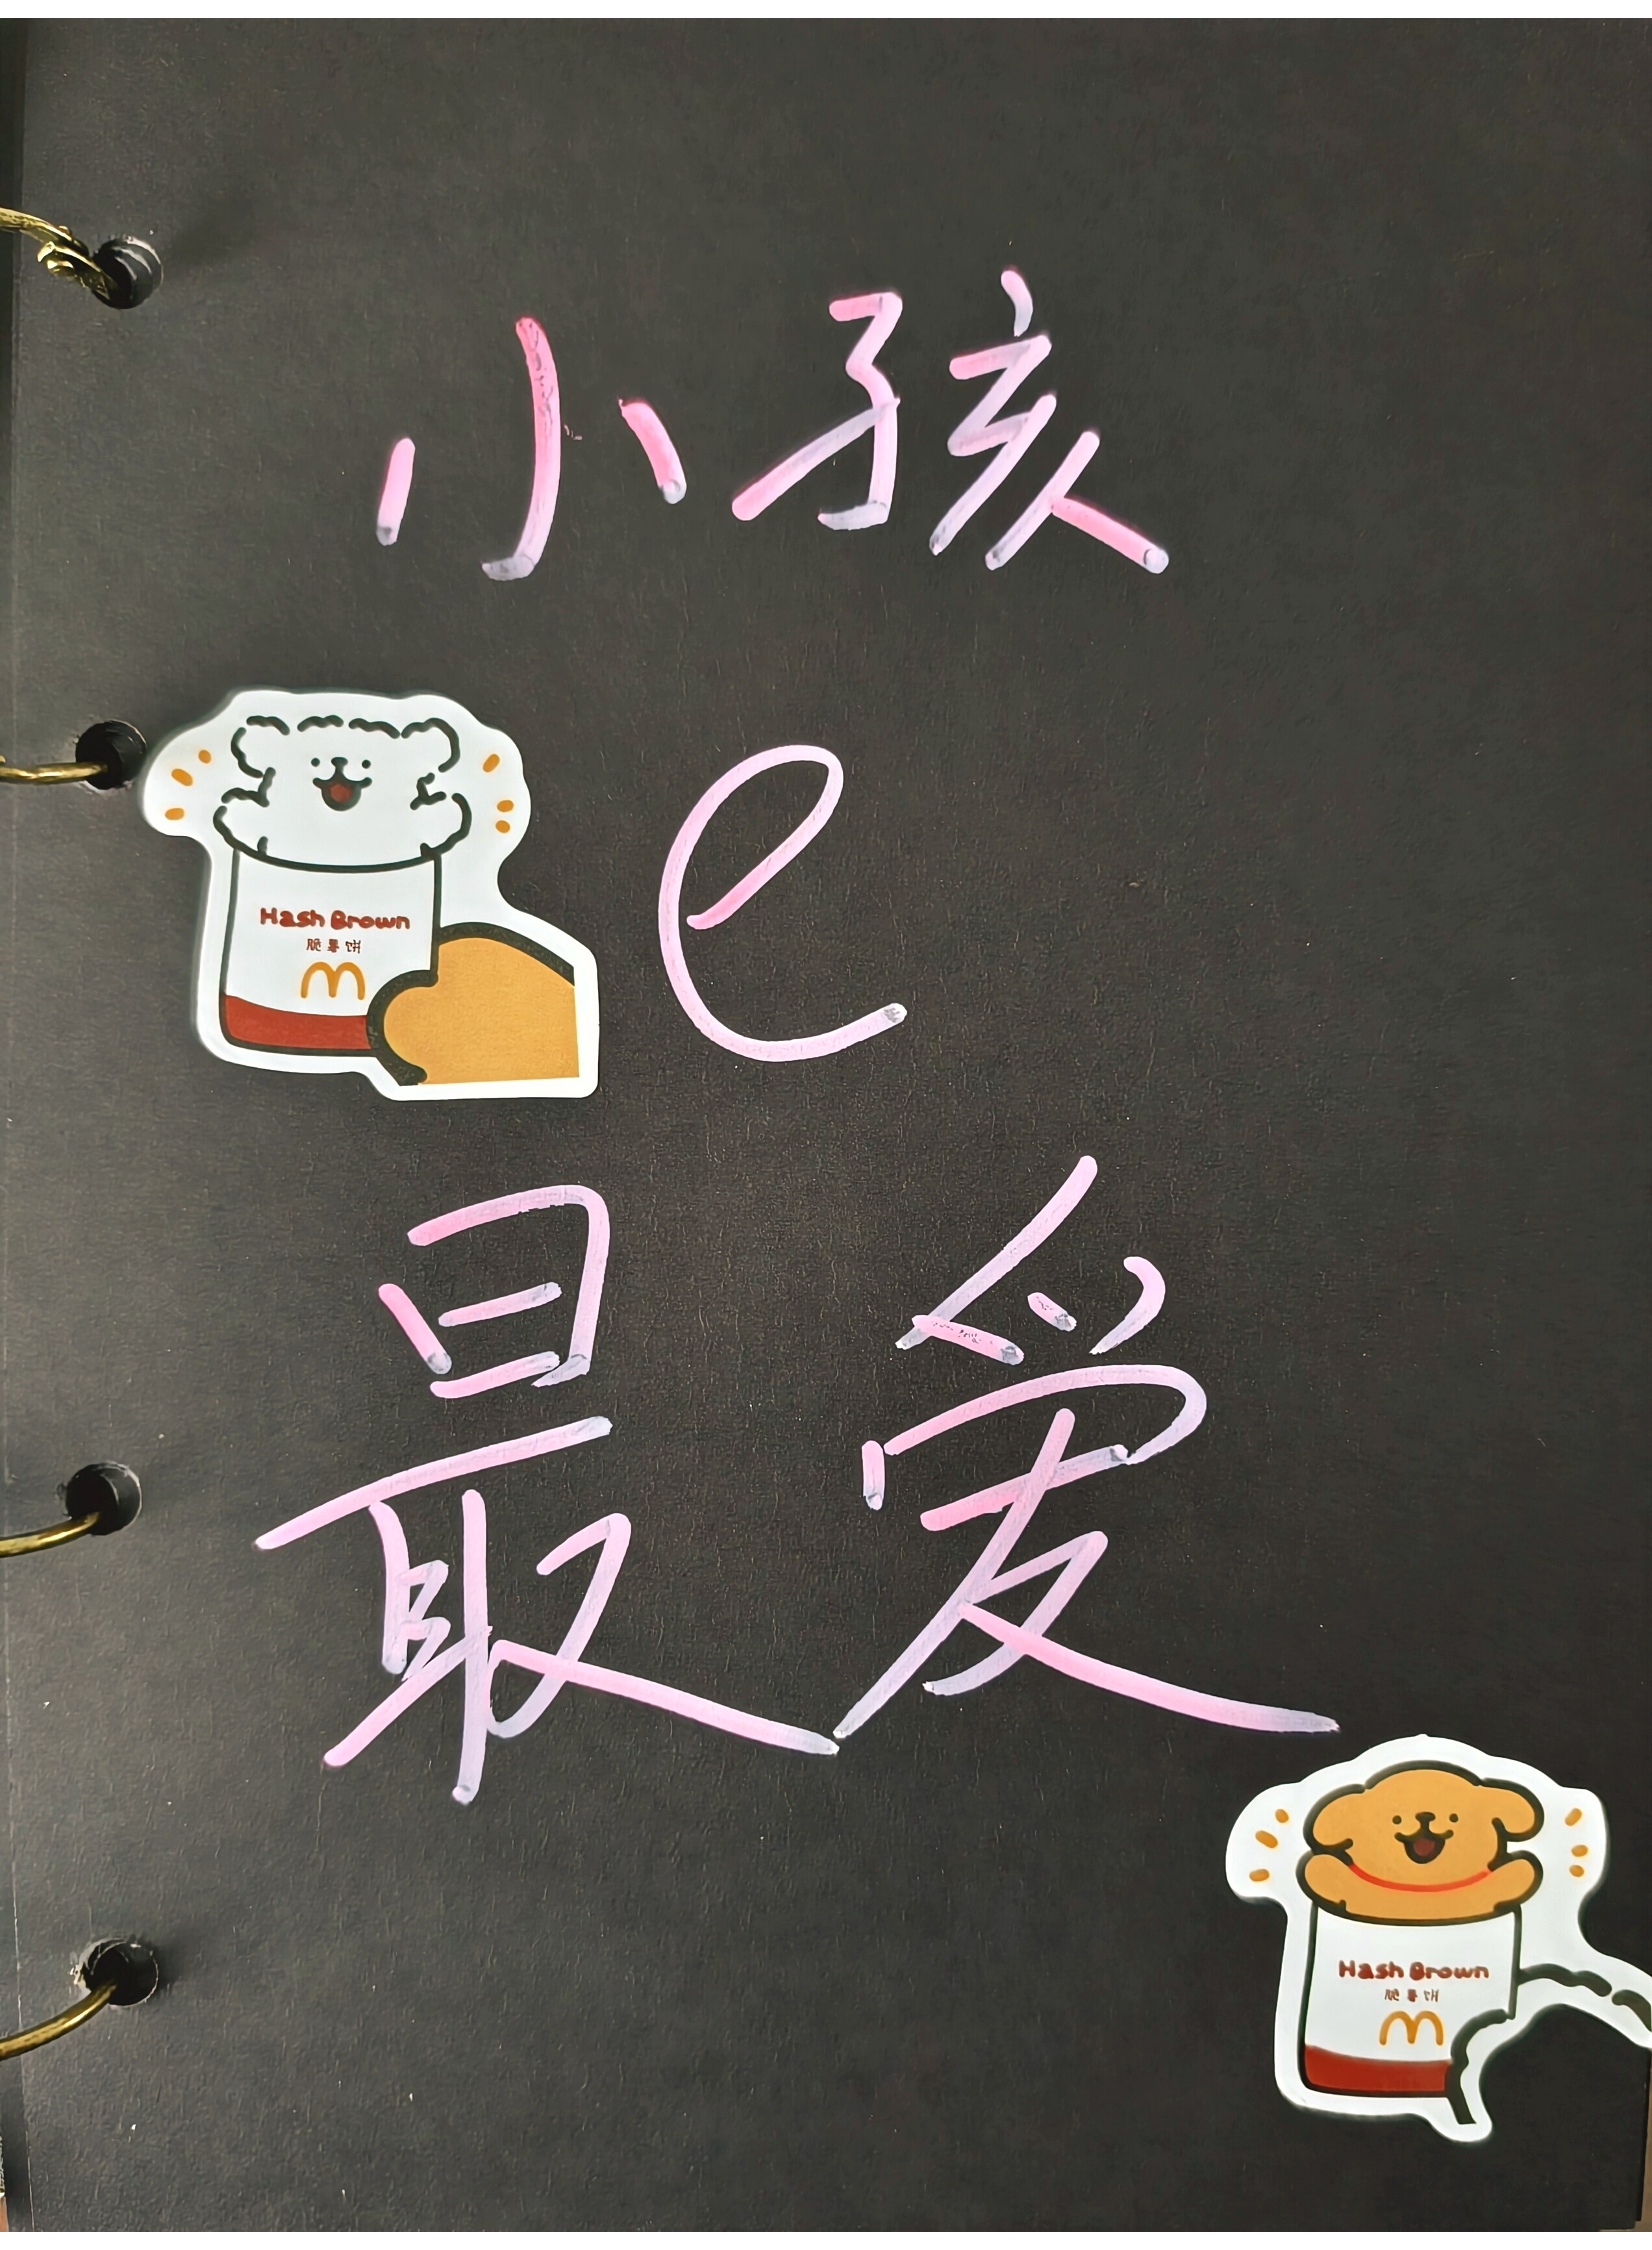 小孩
e
Hash Brown
脆薯饼
最爱
Hash Brown
脆薯饼